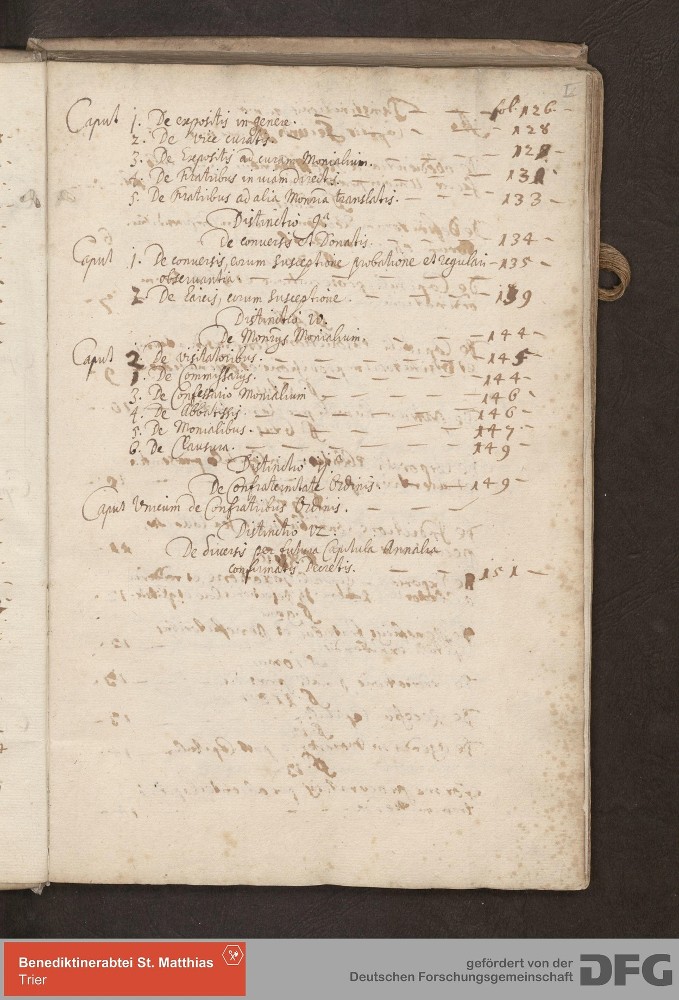 Caput 1. De expositis in genere. — — — fol. 126 —
2. De vice curatis. — — — 128
3. De Expositis ad curam Monialium. 128
4. De Fratribus in viam directis. — — — 131 —
5. De Fratribus ad alia Monria translatis. — — — 133 —
Distinctio
De conversis et Donatis. — — — 134 —
Caput 1. De conversis, eorum susceptione probatione et regulari — 135 —
observantia — — —
2. De Laicis, eorum susceptione. — — — 139
Distinctio
De Monrijs Monialium — — — 144 —
Caput 2. De visitatoribus. — — — 145 —
1. De Commissarijs. — — — 144 —
3. De Confessario Monialium — — — 146 —
4. De Abbatissis. — — — 146 —
5. De Monialibus. — — — 147 —
6. De Clausura. — — — 149 —
Distinctio
De Confraternitate Ordinis. — — — 149 —
Caput Unicum de Confratribus Ordinis. — — —
Distinctio
De diversis per futura Capitula Annalia
confirmatis Decretis. — — — 151 —
Benediktinerabtei St. Matthias
Trier
gefördert von der
Deutschen Forschungsgemeinschaft
DFG